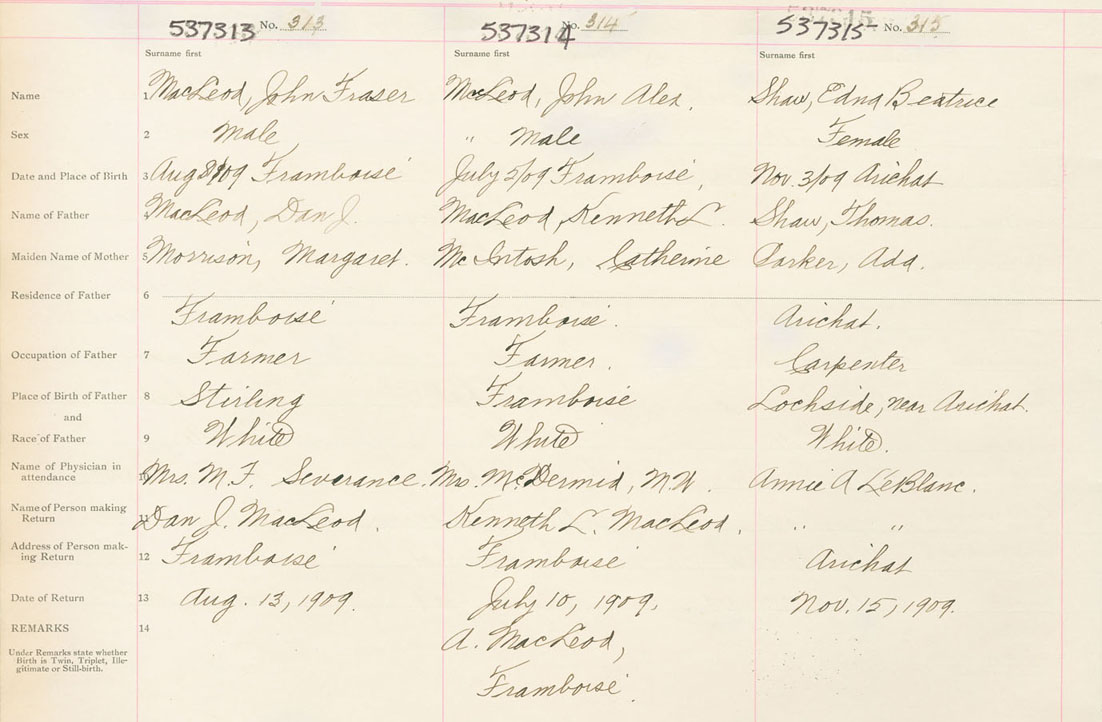 537313 No. 313 537314 No. 314 537315 No. 315
Surname first Surname first Surname first
Name 1 MacLeod, John Fraser McLeod, John Alex. Shaw, Edna Beatrice
Sex 2 Male " Male Female
Date and Place of Birth 3 Aug /09 Framboise July 2/09 Framboise, Nov. 3/09 Arichat
Name of Father 4 MacLeod, Dan J. MacLeod, Kenneth L. Shaw, Thomas.
Maiden Name of Mother 5 Morrison, Margaret. McIntosh, Catherine Parker, Ada.
Residence of Father 6
Framboise Framboise. Arichat.
Occupation of Father 7 Farmer Farmer. Carpenter
Place of Birth of Father 8 Stirling Framboise Lochside, near Arichat.
and
Race of Father 9 White White White.
Name of Physician in
attendance 10 Mrs. M. F. Severance. Mrs. McDermid, M.W. Annie A LeBlanc.
Name of Person making
Return 11 Dan J. MacLeod. Kenneth L. MacLeod. " "
Address of Person mak-
ing Return 12 Framboise Framboise Arichat
Date of Return 13 Aug. 13, 1909. July 10, 1909. Nov. 15, 1909.
REMARKS 14 A. MacLeod,
Under Remarks state whether
Birth is Twin, Triplet, Ille-
gitimate or Still-birth.
Framboise